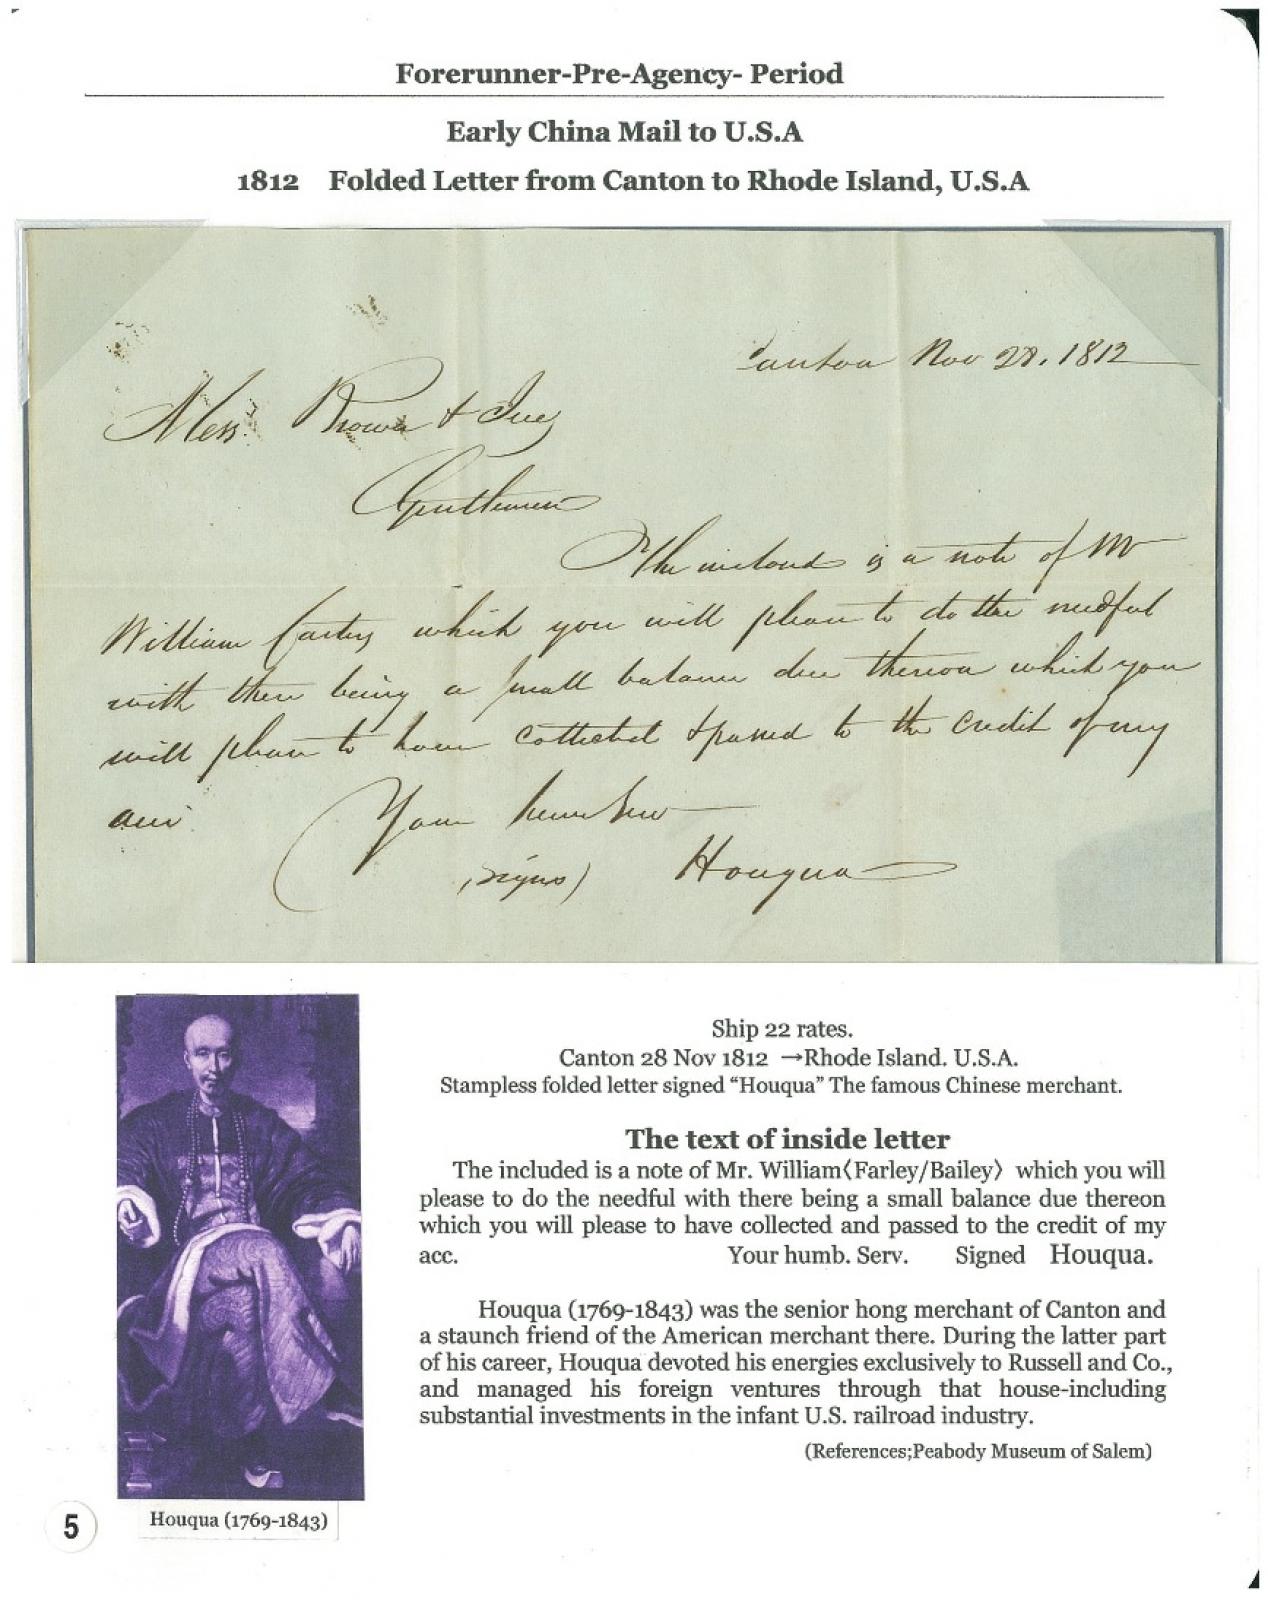 Forerunner-Pre-Agency- Period
Early China Mail to U.S.A
1812 Folded Letter from Canton to Rhode Island, U.S.A
Canton Nov 28. 1812
Mess. Brown & Ives
Gentlemen
The inclosed is a note of Mr
William which you will please to do the needful
with there being a small balance due thereon which you
will please to have collected & passed to the credit of my
Your humb Serv
(signd) Houqua
Ship 22 rates.
Canton 28 Nov 1812 →Rhode Island. U.S.A.
Stampless folded letter signed “Houqua” The famous Chinese merchant.
The text of inside letter
The included is a note of Mr. William⟨Farley/Bailey⟩ which you will
please to do the needful with there being a small balance due thereon
which you will please to have collected and passed to the credit of my
acc. Your humb. Serv. Signed Houqua.
Houqua (1769-1843) was the senior hong merchant of Canton and
a staunch friend of the American merchant there. During the latter part
of his career, Houqua devoted his energies exclusively to Russell and Co.,
and managed his foreign ventures through that house-including
substantial investments in the infant U.S. railroad industry.
(References;Peabody Museum of Salem)
Houqua (1769-1843)
5